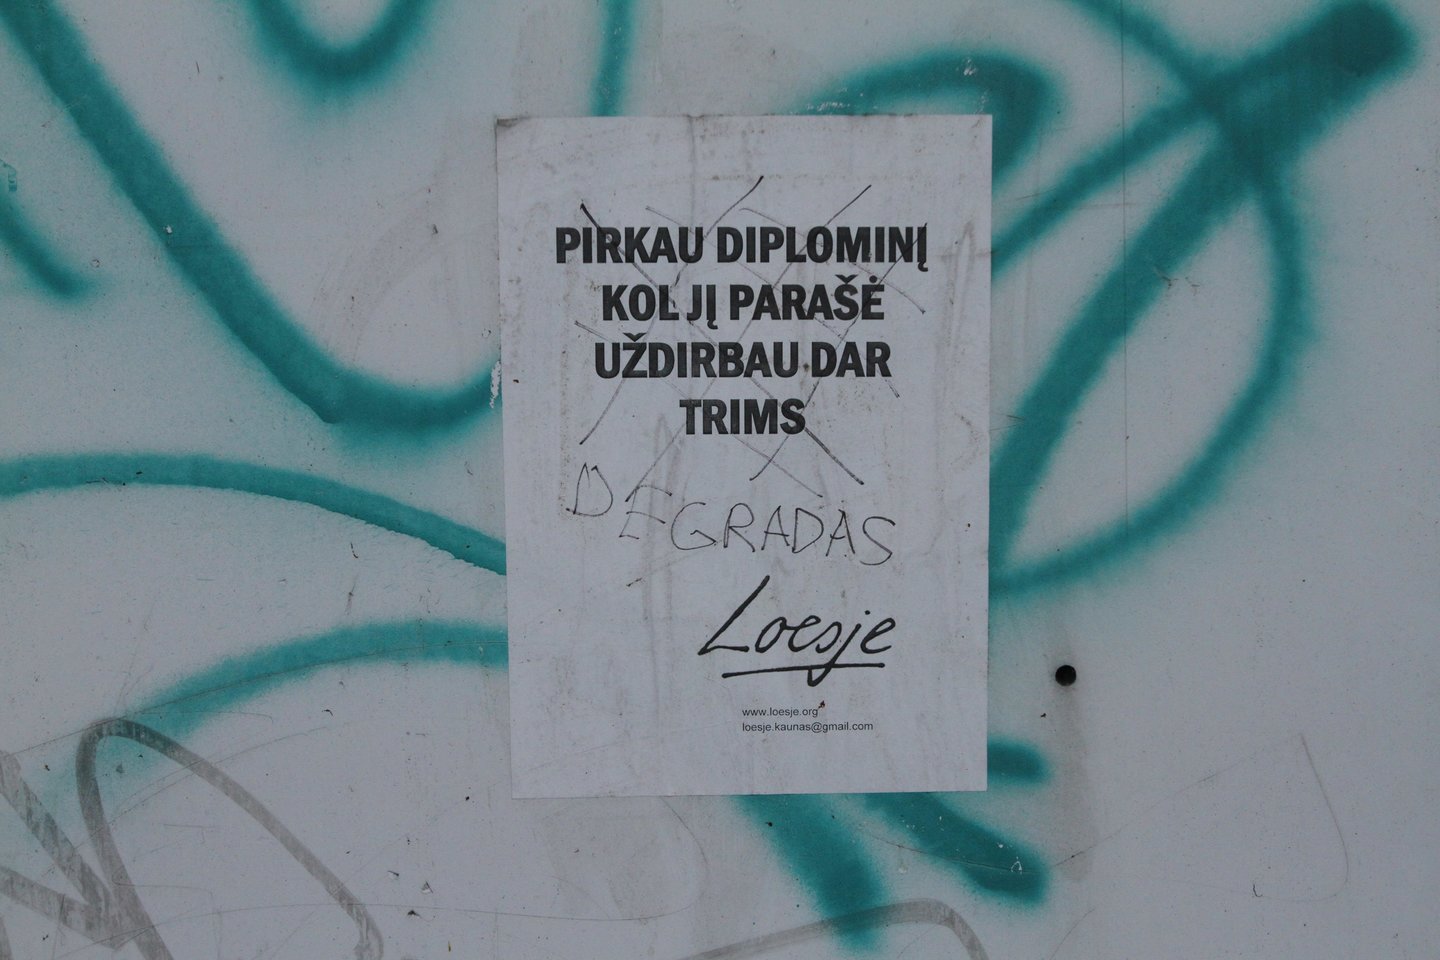 PIRKAU DIPLOMINĮ
KOL JĮ PARAŠĖ
UŽDIRBAU DAR
TRIMS
DEGRADAS
Loesje
www.loesje.org
loesje.kaunas@gmail.com